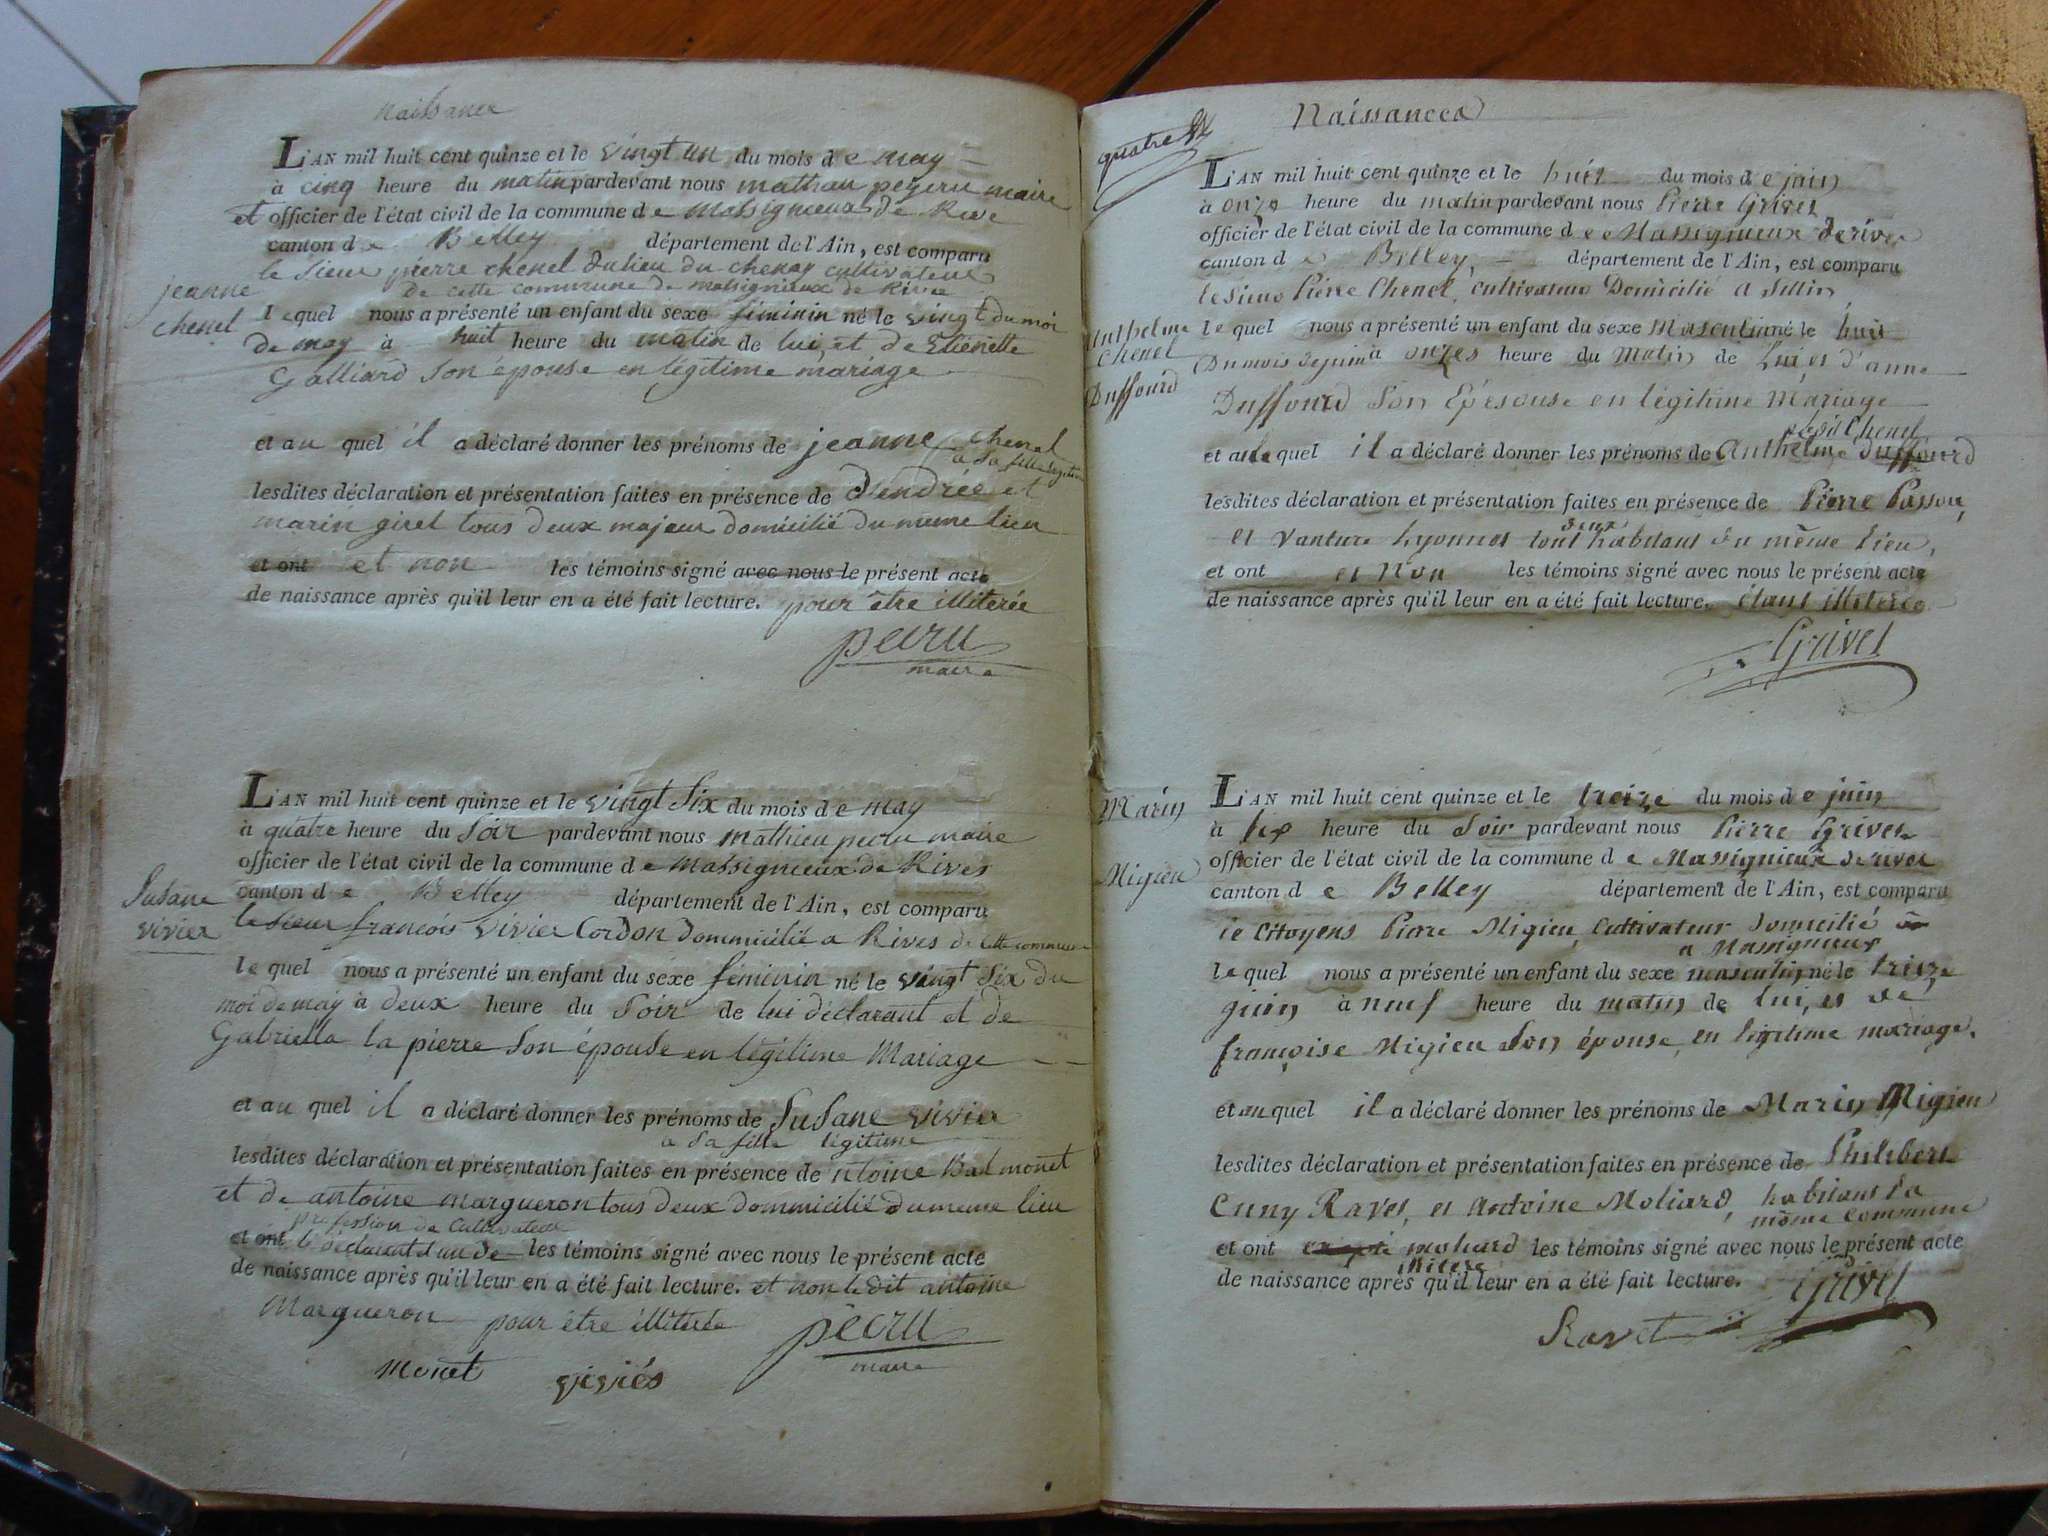 Naissance
L'AN mil huit cent quinze et le vingt un du mois de may
à cinq heure du matin pardevant nous mathieu maire
et officier de l'état civil de la commune de Massignieux de Rive
canton de Belley département de l'Ain, est comparu
le Sieur pierre chenel du lieu du chenay cultivateur
de cette commune de massignieux de Rive
jeanne
chenel
lequel nous a présenté un enfant du sexe féminin né le vingt du moi
de may à huit heure du matin de lui, et de Etienette
Galliard Son épouse en légitime mariage
et au quel il a déclaré donner les prénoms de jeanne chenel
a sa fille légitime
lesdites déclaration et présentation faites en présence de et
marin giret tous deux majeur domicilié du meme lieu
et ont et non les témoins signé avec nous le présent acte
de naissance après qu'il leur en a été fait lecture. pour être illiterée
pecru
maire
L'AN mil huit cent quinze et le vingt Six du mois de may
à quatre heure du Soir pardevant nous mathieu pecru maire
officier de l'état civil de la commune de Massignieux de Rives
canton de Belley département de l'Ain, est comparu
Susane
vivier
le Sieur françois vivier Cordon Dommicilié a Rives de cette commune
lequel nous a présenté un enfant du sexe féminin né le vingt Six du
moi de may à deux heure du Soir de lui déclarant et de
Gabriella la pierre Son épouse en légitime Mariage
et au quel il a déclaré donner les prénoms de Susane vivier
a Sa fille légitime
lesdites déclaration et présentation faites en présence de ntoine Bal monet
et de antoine margueron tous deux dommicilié du meme lieu
profession de Cultivateur
et ont le déclarant l'un de les témoins signé avec nous le présent acte
de naissance après qu'il leur en a été fait lecture. et non le dit antoine
Margueron pour être illiterée
pecru
maire
monet viviés
quatre
Naissances
L'AN mil huit cent quinze et le huit du mois de juin
à onze heure du matin pardevant nous Pierre Grivet
officier de l'état civil de la commune de Massignieux de rive
canton de Belley, département de l'Ain, est comparu
le Sieur Pierre Chenel, cultivateur Domicilié a
Anthelme
Chenel
Duffourd
lequel nous a présenté un enfant du sexe Masculin né le huit
Du mois de juin à onzes heure du Matin de Lui et d'anne
Duffourd Son Epesouse en légitime Mariage
Chenel
et au quel il a déclaré donner les prénoms de Anthelme Duffourd
lesdites déclaration et présentation faites en présence de Pierre Passou,
et Vanture Lyonnet tout deux habitant du même Lieu,
et ont et Non les témoins signé avec nous le présent acte
de naissance après qu'il leur en a été fait lecture. étant illeteres
Grivet
L'AN mil huit cent quinze et le treize du mois de juin
à six heure du Soir pardevant nous Pierre Grivet
officier de l'état civil de la commune de Massignieux de rives
canton de Belley département de l'Ain, est comparu
Marin
Migieu
le Citoyens Pierre Migieu, Cultivateur Domicilié
a Massignieux
lequel nous a présenté un enfant du sexe masculin né le treize
juin à neuf heure du matin de lui, et de
françoise Migieu Son épouse, en légitime mariage.
et au quel il a déclaré donner les prénoms de Marin Migieu
lesdites déclaration et présentation faites en présence de Philibert
Cuny Ravet, et Antoine Moliard, habitant la
même commune
et ont moliard les témoins signé avec nous le présent acte
de naissance après qu'il leur en a été fait lecture. Grivet
Ravet